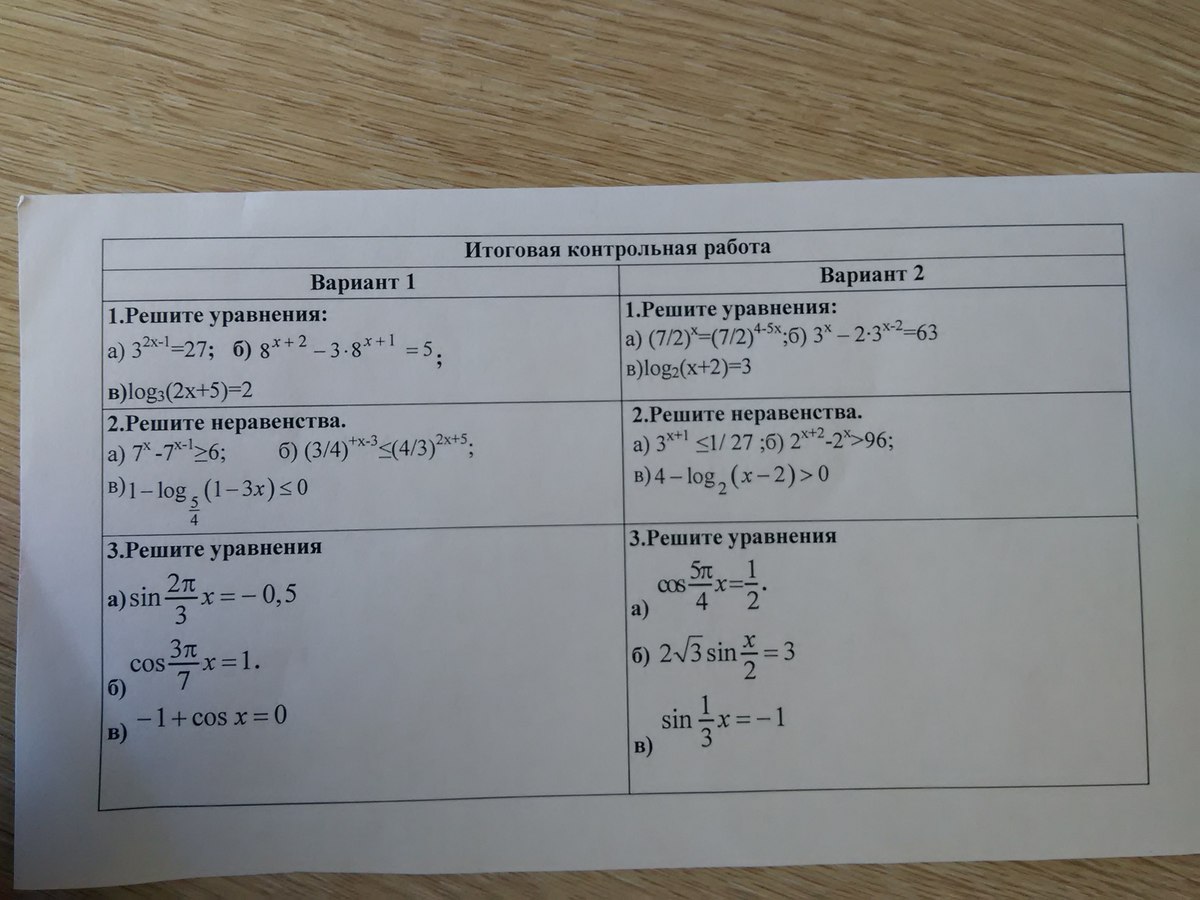 Итоговая контрольная работа
Вариант 1
1.Решите уравнения:
а) 3^{2x-1}=27; б) 8^{x+2} – 3·8^{x+1} = 5;
в)log₃(2x+5)=2
2.Решите неравенства.
а) 7^x -7^{x-1}≥6; б) (3/4)^{+x-3}≤(4/3)^{2x+5};
в)1–log_{5/4}(1–3x)≤0
3.Решите уравнения
а)sin 2π/3 x=–0,5
б) cos 3π/7 x=1.
в) –1+cos x=0
Вариант 2
1.Решите уравнения:
а) (7/2)^x=(7/2)^{4-5x};б) 3^x – 2·3^{x-2}=63
в)log₂(x+2)=3
2.Решите неравенства.
а) 3^{x+1} ≤1/ 27 ;б) 2^{x+2}-2^x>96;
в)4–log₂(x–2)>0
3.Решите уравнения
а) cos 5π/4 x=1/2.
б) 2√3 sin x/2 =3
в) sin 1/3 x=–1